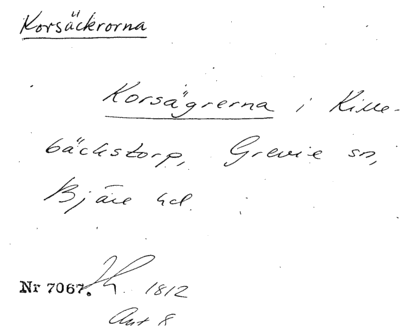 Korsäckrorna
Korsägrerna i Kille-
bäckstorp, Grevie sn,
Bjäre hd.
Nr 7067. 1812
Ant 8